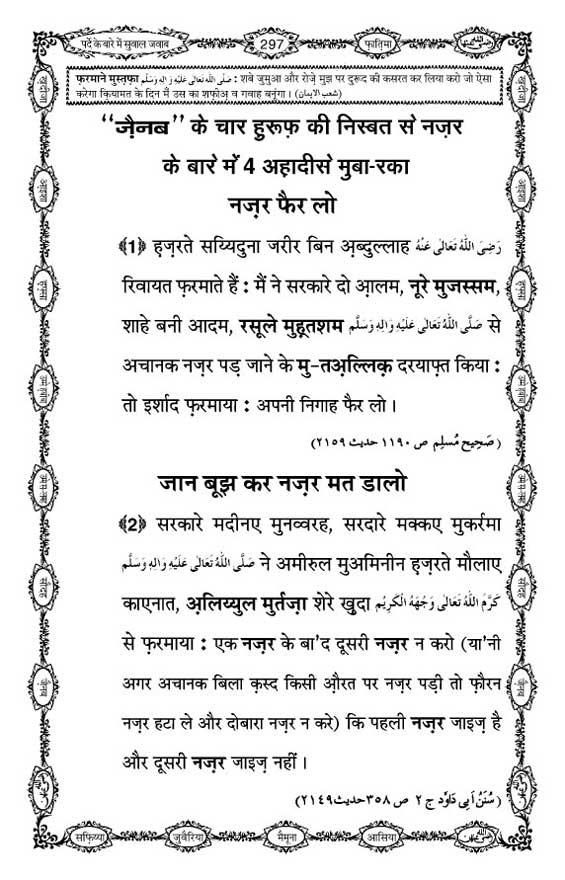 पर्दे के बारे में सुवाल जवाब
297
फ़ातिमा
फ़रमाने मुस्तफ़ा صَلَّى اللهُ تَعَالٰى عَلَيْهِ وَاٰلِهٖ وَسَلَّم : शबे जुमुआ और रोज़े मुझ पर दुरूद की कसरत कर लिया करो जो ऐसा
करेगा क़ियामत के दिन मैं उस का शफ़ीअ़ व गवाह बनूंगा। (شعب الایمان)
“ज़ैनब” के चार हुरूफ़ की निस्बत से नज़र
के बारे में 4 अहादीसे मुबा-रका
नज़र फैर लो
﴾1﴿ हज़रते सय्यिदुना जरीर बिन अ़ब्दुल्लाह رَضِىَ اللهُ تَعَالٰى عَنْهُ
रिवायत फ़रमाते हैं : मैं ने सरकारे दो आ़लम, नूरे मुजस्सम,
शाहे बनी आदम, रसूले मुह़्तशम صَلَّى اللهُ تَعَالٰى عَلَيْهِ وَاٰلِهٖ وَسَلَّم से
अचानक नज़र पड़ जाने के मु-तअ़ल्लिक़ दरयाफ़्त किया :
तो इर्शाद फ़रमाया : अपनी निगाह फैर लो ।
(صَحِيح مُسلِم ص ١١٩٠ حديث ٢١٥٩)
जान बूझ कर नज़र मत डालो
﴾2﴿ सरकारे मदीनए मुनव्वरह, सरदारे मक्कए मुकर्रमा
صَلَّى اللهُ تَعَالٰى عَلَيْهِ وَاٰلِهٖ وَسَلَّم ने अमीरुल मुअमिनीन हज़रते मौलाए
काएनात, अ़लिय्युल मुर्तज़ा शेरे ख़ुदा كَرَّمَ اللهُ تَعَالٰى وَجْهَهُ الْكَرِيْم
से फ़रमाया : एक नज़र के बा'द दूसरी नज़र न करो (या'नी
अगर अचानक बिला क़स्द किसी औ़रत पर नज़र पड़ी तो फ़ौरन
नज़र हटा ले और दोबारा नज़र न करे) कि पहली नज़र जाइज़ है
और दूसरी नज़र जाइज़ नहीं ।
(سُنَنُ اَبِى دَاوٗد ج ٢ ص ٣٥٨ حديث ٢١٤٩)
ख़दीजा
आइशा
हफ़्सा
उम्मे हबीबा
उम्मे स-लमह
सौदह
ज़ैनब
ख़दीजा
आइशा
हफ़्सा
उम्मे हबीबा
उम्मे स-लमह
सौदह
ज़ैनब
सफ़िय्या
जुवैरिया
मैमूना
आसिया